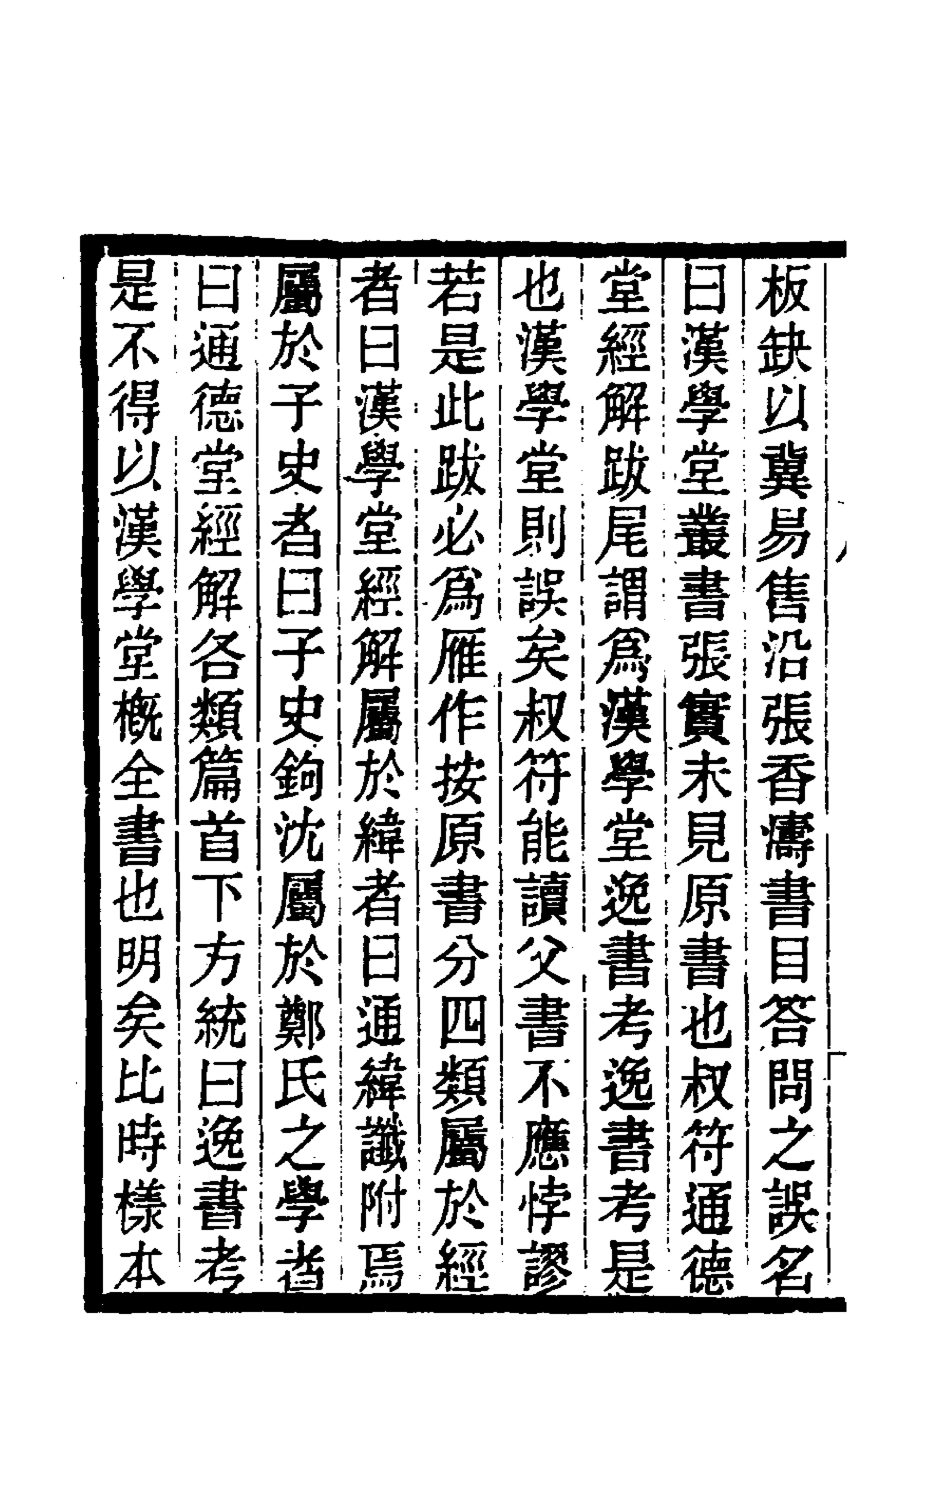 板缺以冀易售沿張香濤書目答問之誤名
曰漢學堂叢書張實未見原書也叔符通德
堂經解跋尾謂爲漢學堂逸書考逸書考是
也漢學堂則誤矣叔符能讀父書不應悖謬
若是此跋必爲雁作按原書分四類屬於經
者曰漢學堂經解屬於緯者曰通緯讖附焉
屬於子史者曰子史鉤沈屬於鄭氏之學者
曰通德堂經解各類篇首下方統曰逸書考
是不得以漢學堂概全書也明矣比時樣本